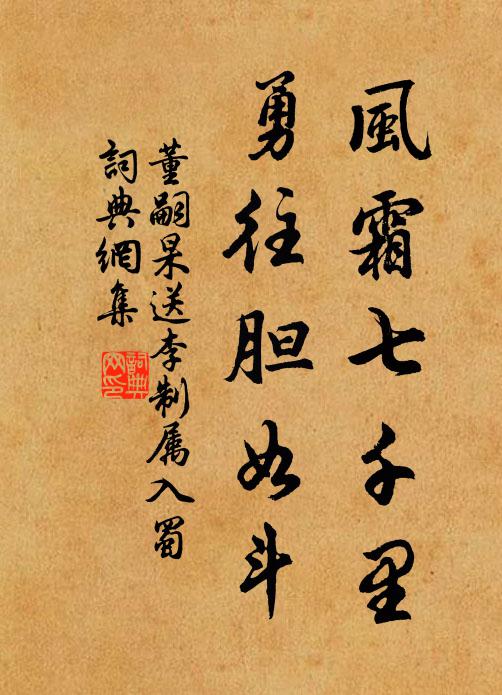 風霜七千里
勇往胆如斗
董嗣杲送李制属入蜀
詞典網集
詞典
网印